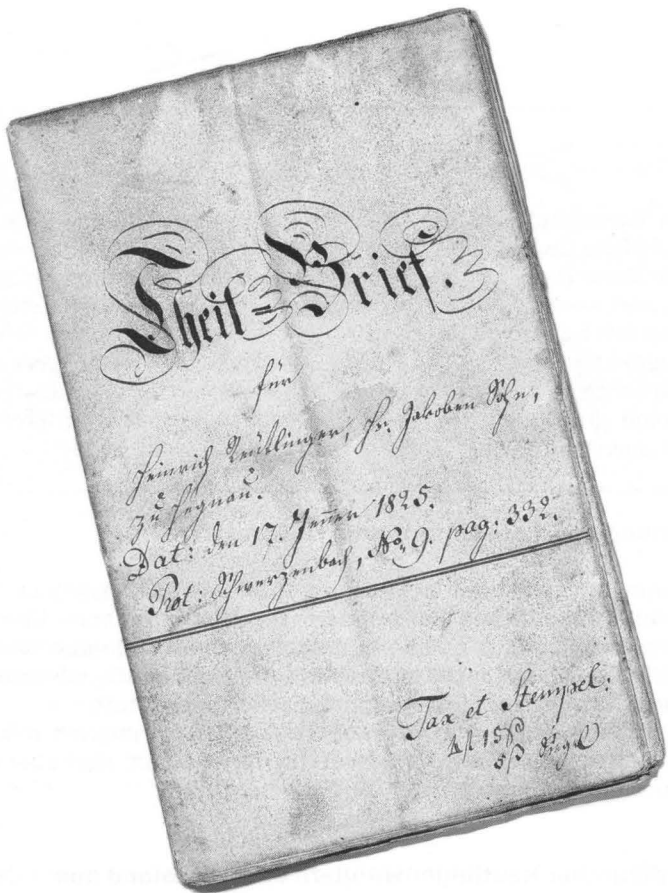 Theil-Brief.
für
Heinrich Reütlinger, Hs. Jakoben Sohn,
zu Hegnau.
Dat: den 17. Jenner 1825.
Prot: Schwerzenbach, No. 9. pag: 332.
Tax et Stempel: